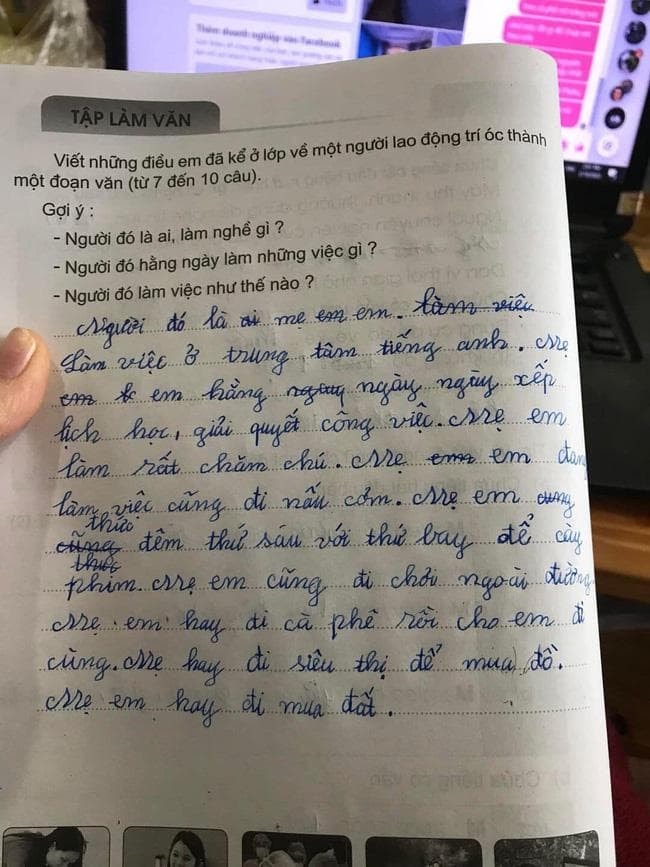 Thêm doanh nghiệp vào Facebook
TẬP LÀM VĂN
Viết những điều em đã kể ở lớp về một người lao động trí óc thành
một đoạn văn (từ 7 đến 10 câu).
Gợi ý :
- Người đó là ai, làm nghề gì ?
- Người đó hằng ngày làm những việc gì ?
- Người đó làm việc như thế nào ?
Người đó là ai mẹ em em. làm việc
Làm việc ở trung tâm tiếng anh. Mẹ
em hằng ngày ngày ngày xếp
lịch học, giải quyết công việc. Mẹ em
làm rất chăm chú. Mẹ em em đang
làm việc cũng đi nấu cơm. Mẹ em
thức
cũng đêm thứ sáu với thứ bay để cày
thức
phim. Mẹ em cũng đi chơi ngoài đường
Mẹ em hay đi cà phê rồi cho em đi
cùng. Mẹ hay đi siêu thị để mua đồ.
Mẹ em hay đi mua đất.